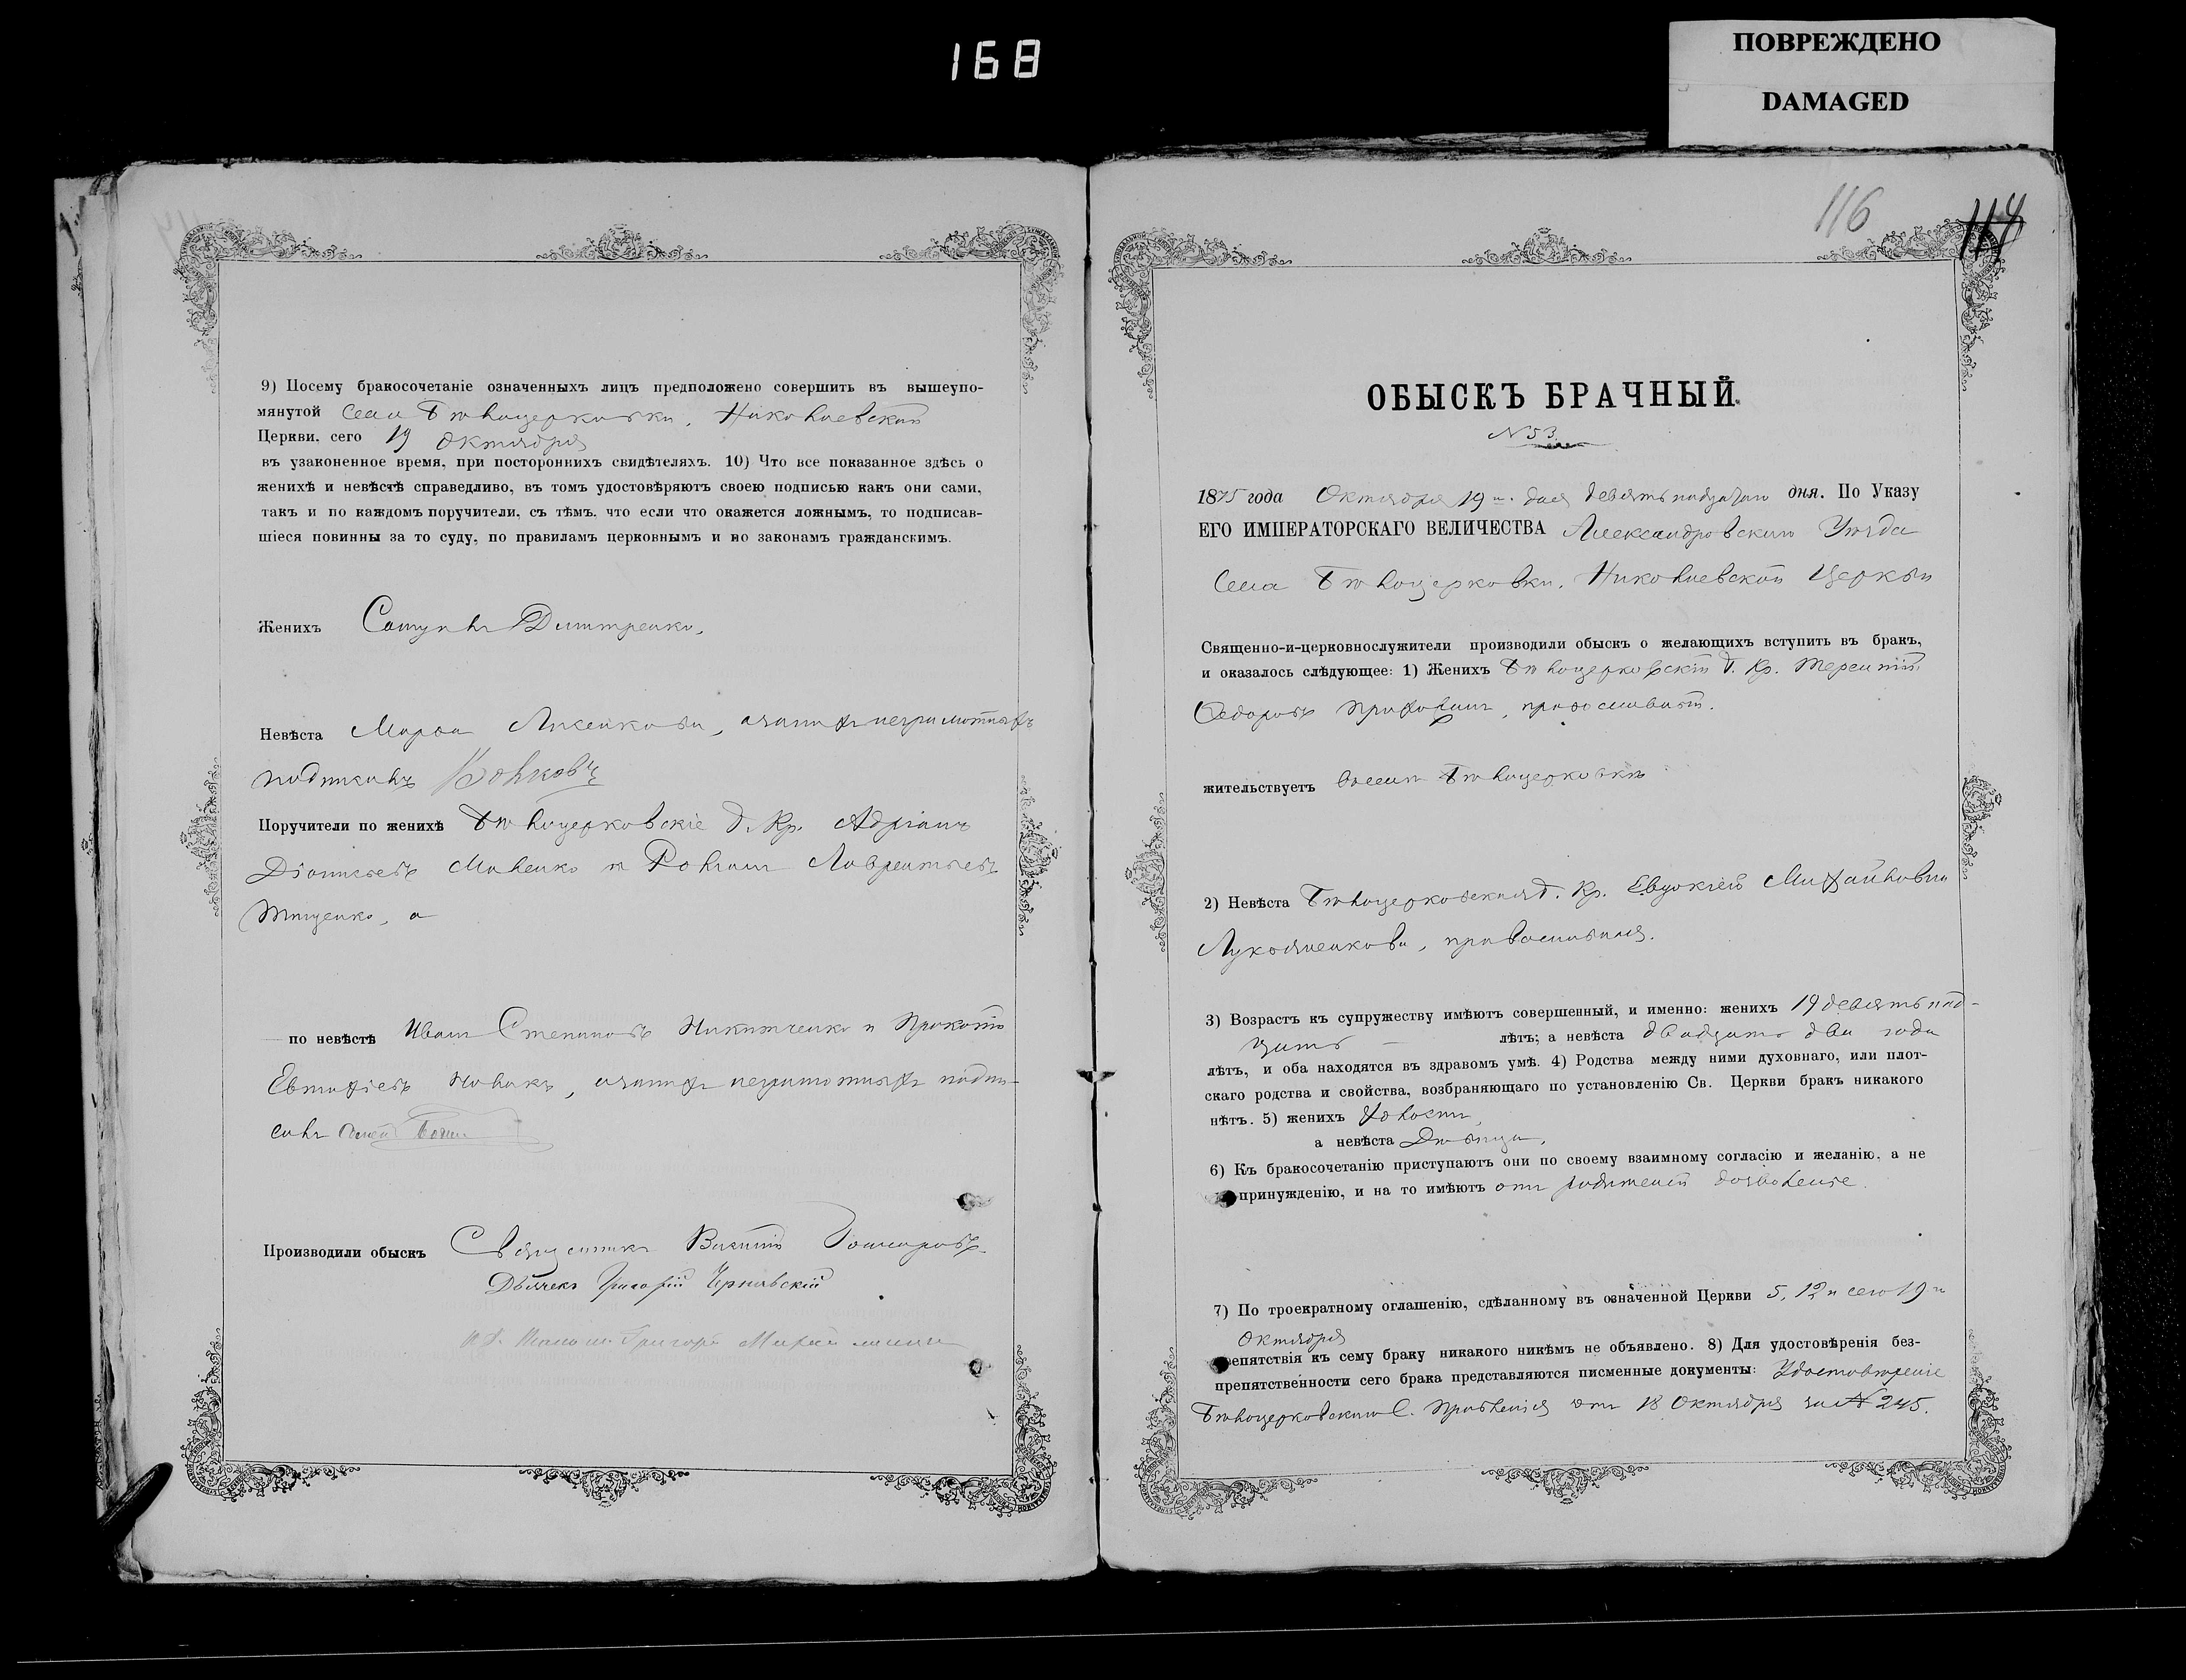 168
ПОВРЕЖДЕНО
DAMAGED
9) Посему бракосочетаніе означенныхъ лицъ предположено совершить въ вышеупо-
мянутой Села Бѣлоцерковки, Николаевской
Церкви, сего 19 Октября
въ узаконенное время, при постороннихъ свидѣтеляхъ. 10) Что все показанное здѣсь о
женихѣ и невѣстѣ справедливо, въ томъ удостовѣряютъ своею подписью какъ они сами,
такъ и по каждомъ поручители, съ тѣмъ, что если что окажется ложнымъ, то подписав-
шіеся повинны за то суду, по правиламъ церковнымъ и по законамъ гражданскимъ.
Женихъ Димитренко,
Невѣста Марфа а за нихъ неграмотныхъ
подписалъ Волковъ
Поручители по женихѣ Бѣлоцерковскіе д. Кр. Адріанъ
Діонисьевъ Маленко и Романъ Лаврентьевъ
Тищенко, а
по невѣстѣ Иванъ Степановъ Никитченко и Прокопій
Евтифіевъ Новакъ, а за нихъ неграмотныхъ подпи-
салъ
Производили обыскъ Священникъ Викентій Гончаровъ
Дьячекъ Григорій Чернявскій
Григорій
116
ОБЫСКЪ БРАЧНЫЙ.
N 53.
1875 года Октября 19 дня девятнадцатаго дня. По Указу
ЕГО ИМПЕРАТОРСКАГО ВЕЛИЧЕСТВА Александровскаго Уѣзда
Села Бѣлоцерковки, Николаевской Церкви
Священно-и-церковнослужители производили обыскъ о желающихъ вступить въ бракъ,
и оказалось слѣдующее: 1) Женихъ Бѣлоцерковскій д. Кр. Терентій
Федоровъ православный.
жительствуетъ въ селѣ Бѣлоцерковкѣ
2) Невѣста Бѣлоцерковская д. Кр. Евдокія Михайловна
Лукьяненкова, православная.
3) Возрастъ къ супружеству имѣютъ совершенный, и именно: женихъ 19 девятнад-
цать лѣтъ; а невѣста двадцать два года
лѣтъ, и оба находятся въ здравомъ умѣ. 4) Родства между ними духовнаго, или плот-
скаго родства и свойства, возбраняющаго по установленію Св. Церкви бракъ никакого
нѣтъ. 5) женихъ Холостъ,
а невѣста Дѣвица,
6) Къ бракосочетанію приступаютъ они по своему взаимному согласію и желанію, а не
принужденію, и на то имѣютъ отъ родителей дозволеніе.
7) По троекратному оглашенію, сдѣланному въ означенной Церкви 5, 12 и сего 19 
Октября
епятствія къ сему браку никакого никѣмъ не объявлено. 8) Для удостовѣренія без-
препятственности сего брака представляются писменные документы: Удостовѣреніе
Бѣлоцерковскаго С. Правленія отъ 18 Октября за N 245.